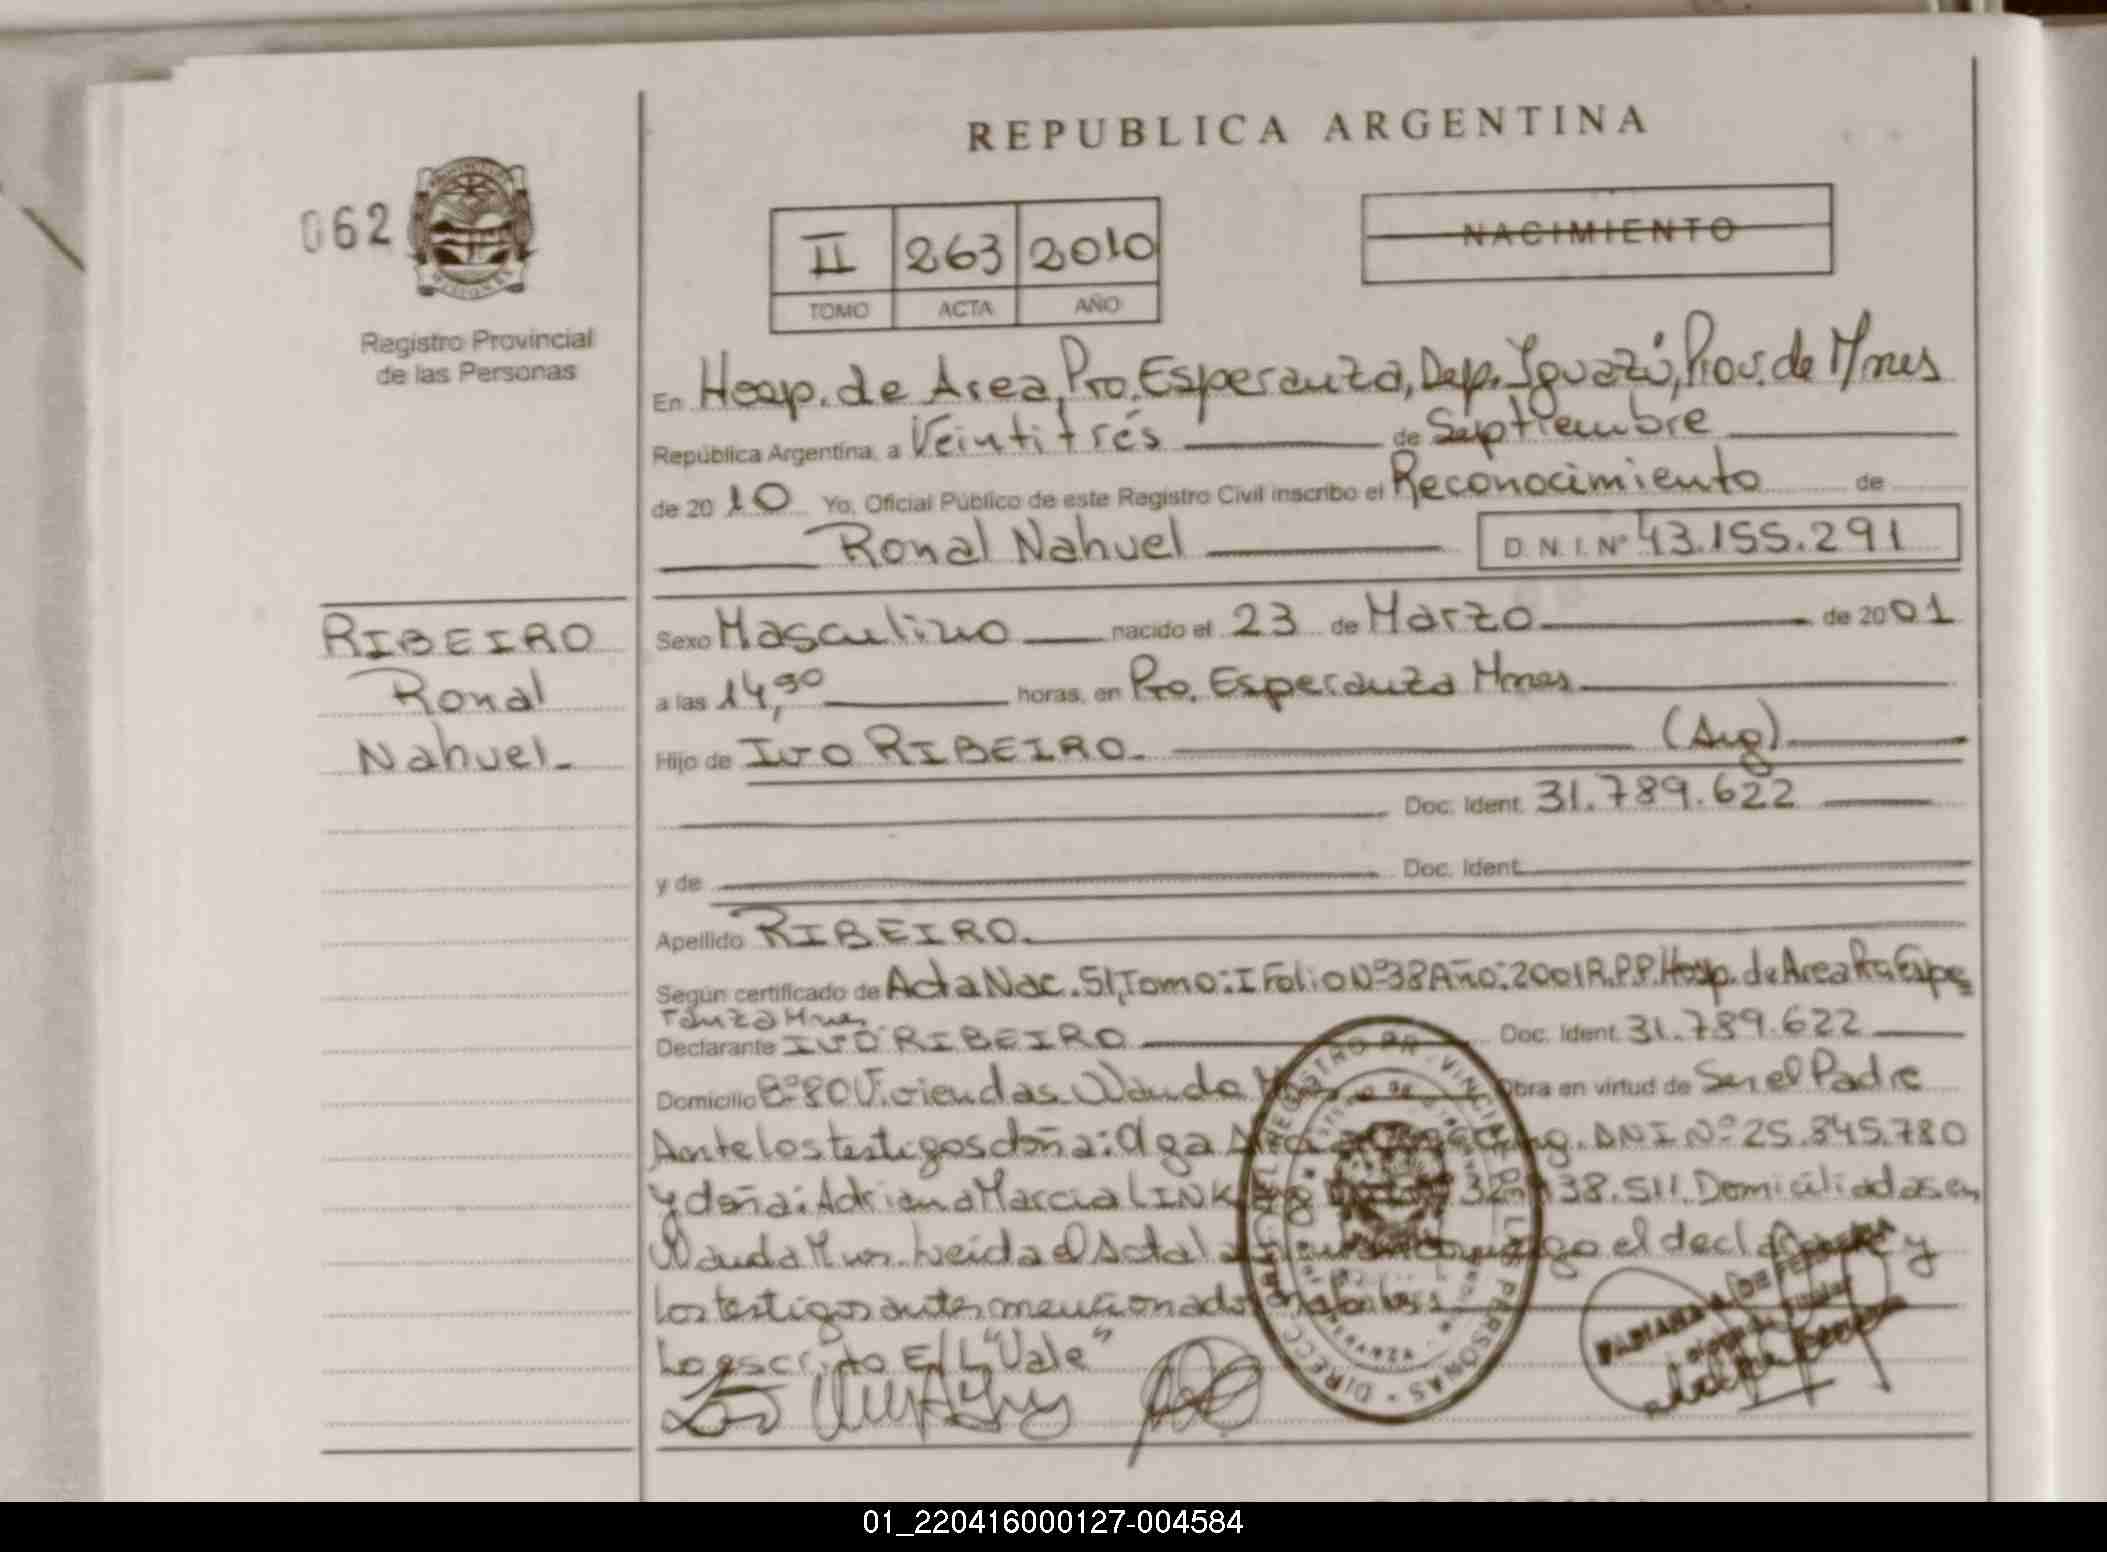 REPUBLICA ARGENTINA
062
II 263 2010
TOMO ACTA AÑO
NACIMIENTO
Registro Provincial
de las Personas
En Hosp. de Area, Pto. Esperanza, Dep. Iguazú, Prov. de Mnes
República Argentina, a Veintitrés de Septiembre
de 2010 Yo, Oficial Público de este Registro Civil inscribo el Reconocimiento de
Ronal Nahuel D.N.I. Nº 43.155.291
RIBEIRO
Ronal
Nahuel
Sexo Masculino nacido el 23 de Marzo de 2001
a las 14,30 horas, en Pto. Esperanza Mnes
Hijo de IVO RIBEIRO. (Arg)
Doc. Ident. 31.789.622
y de Doc. Ident.
Apellido RIBEIRO.
Según certificado de Acta Nac. 51, Tomo: I Folio Nº 38 Año: 2001 R.P.P. Hosp. de Area Pto Espe
ranza Mnes
Declarante IVO RIBEIRO Doc. Ident. 31.789.622
Domicilio Bº 80 Viviendas Wanda Obra en virtud de Ser el Padre
Ante los testigos doña: Olga DNI Nº 25.845.780
y doña: Adriana Marcia LINK 38.511. Domiciliadas en
Wanda Mnes. Leida el Acta el declarante y
los testigos antes mencionados
Lo escrito E/L "Vale"
01_220416000127-004584